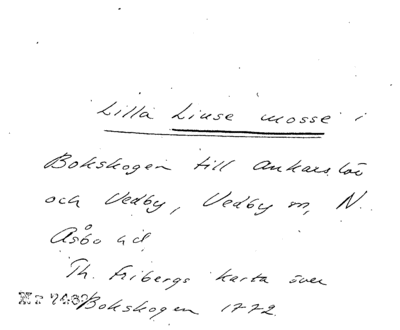 Lilla Liuse mosse i
Bokskogen till Ankarslöv
och Vedby, Vedby sn, N.
Åsbo hd
Th. Fribergs karta över
Bokskogen 1772.